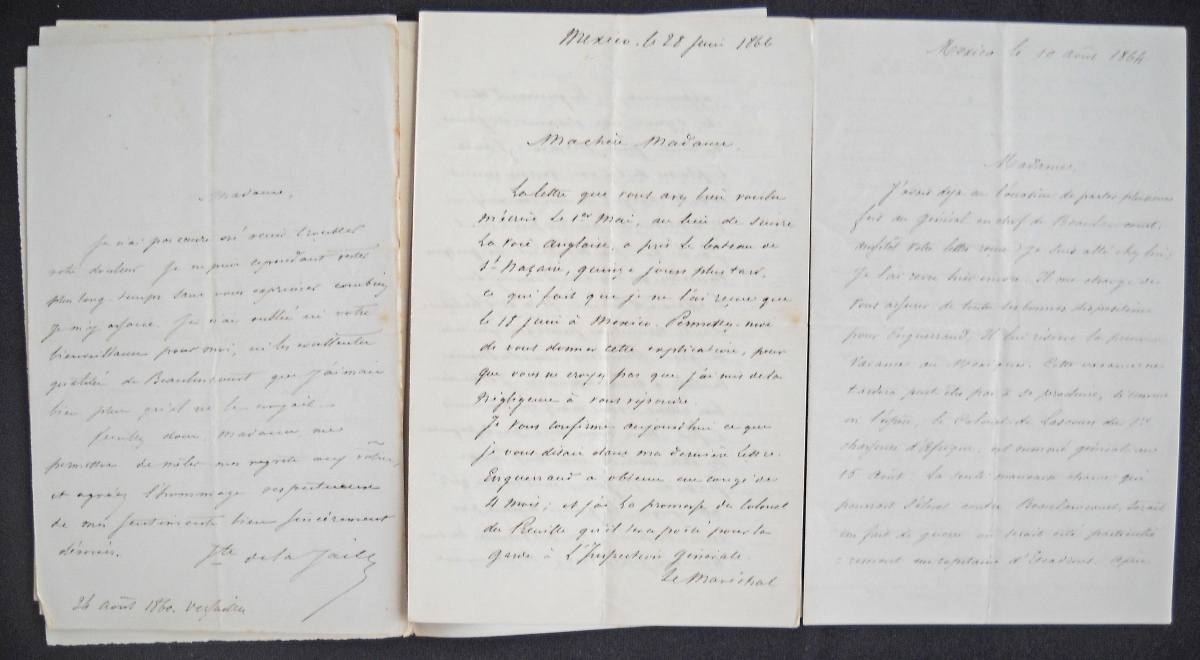 Madame,
Je n'ai pas encore osé venir troubler
votre douleur. Je ne puis cependant rester
plus long-temps sans vous exprimer combien
je m'y associe. Je n'ai oublié ni votre
bienveillance pour moi, ni les excellentes
qualités de Beaulincourt que j'aimais
bien plus qu'il ne le croyait.
Veuillez donc, Madame, me
permettre de mêler mes regrets aux vôtres,
et agréez l'hommage respectueux
de mes sentiments bien sincèrement
dévoués.
de la
24 août 1860. Versailles
Mexico, le 28 Juin 1866
Ma chère Madame,
La lettre que vous avez bien voulu
m'écrire le 1er Mai, au lieu de suivre
la voie anglaise, a pris le bateau de
St Nazaire, quinze jours plus tard,
ce qui fait que je ne l'ai reçue que
le 15 Juin à Mexico. Permettez-moi
de vous donner cette explication, pour
que vous ne croyez pas que j'ai mis de la
négligence à vous répondre.
Je vous confirme aujourd'hui ce que
je vous disais dans ma dernière lettre.
Enguerrand a obtenu un congé de
4 Mois; et j'ai la promesse du Colonel
du Preuille qu'il sera porté pour la
garde à L'Inspection Générale.
Le Maréchal
Mexico le 10 août 1864
Madame,
J'avais déjà eu l'occasion de parler plusieurs
fois au Général en chef de Beaulincourt;
aussitôt votre lettre reçue, je suis allé chez lui;
Je l'ai revu hier encore. Il me charge de
vous assurer de toutes ses bonnes dispositions
pour Enguerrand; Il lui réserve la première
vacance au Mexique. Cette vacance ne
tardera peut-être pas à se produire, si comme
on l'espère, le Colonel de Lascours du 1er
chasseurs d'Afrique, est nommé général au
15 Août. La seule mauvaise chance qui
pourrait s'élever contre Beaulincourt, serait
un fait de guerre où serait cité particuliè
=rement un capitaine d'Escadrons. Après